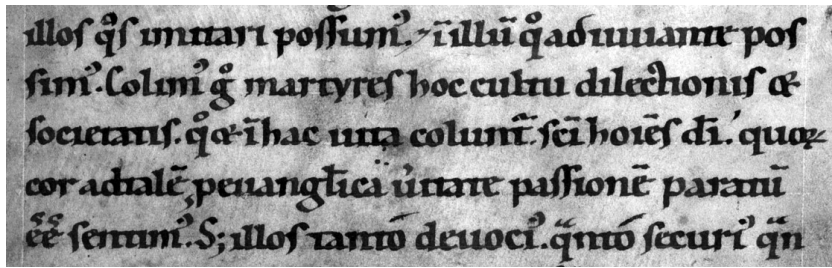 illos qͦs imitari possumꝰ. ⁊ ī illū qͦ adiuuante pos
simꝰ. Colimꝰ gͦ martyres hoc cultu dilectionis &
societatis. qͦ & ī hac uita colunt̄. sc̄i hoīēs dī. quoꝝ
cor ad talē ꝓ euangl̄ica ũitate passionē paratū
ēē sentimꝰ. S; illos tantó deuociꝰ. qᷓntó securiꝰ qᷓn